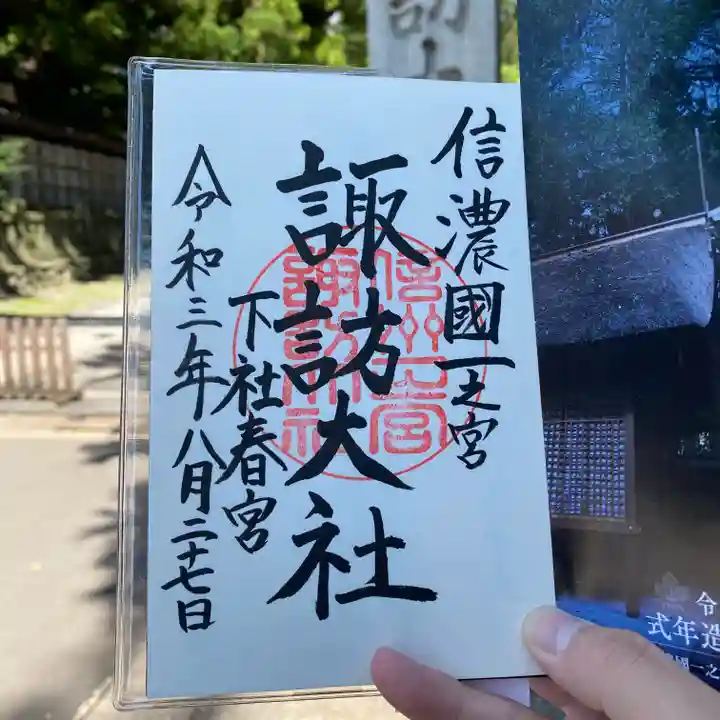 信濃國一之宮
諏訪大社
下社春宮
令和三年八月二十七日
信州一宮
諏訪大社
訪
令
造年式
國一之